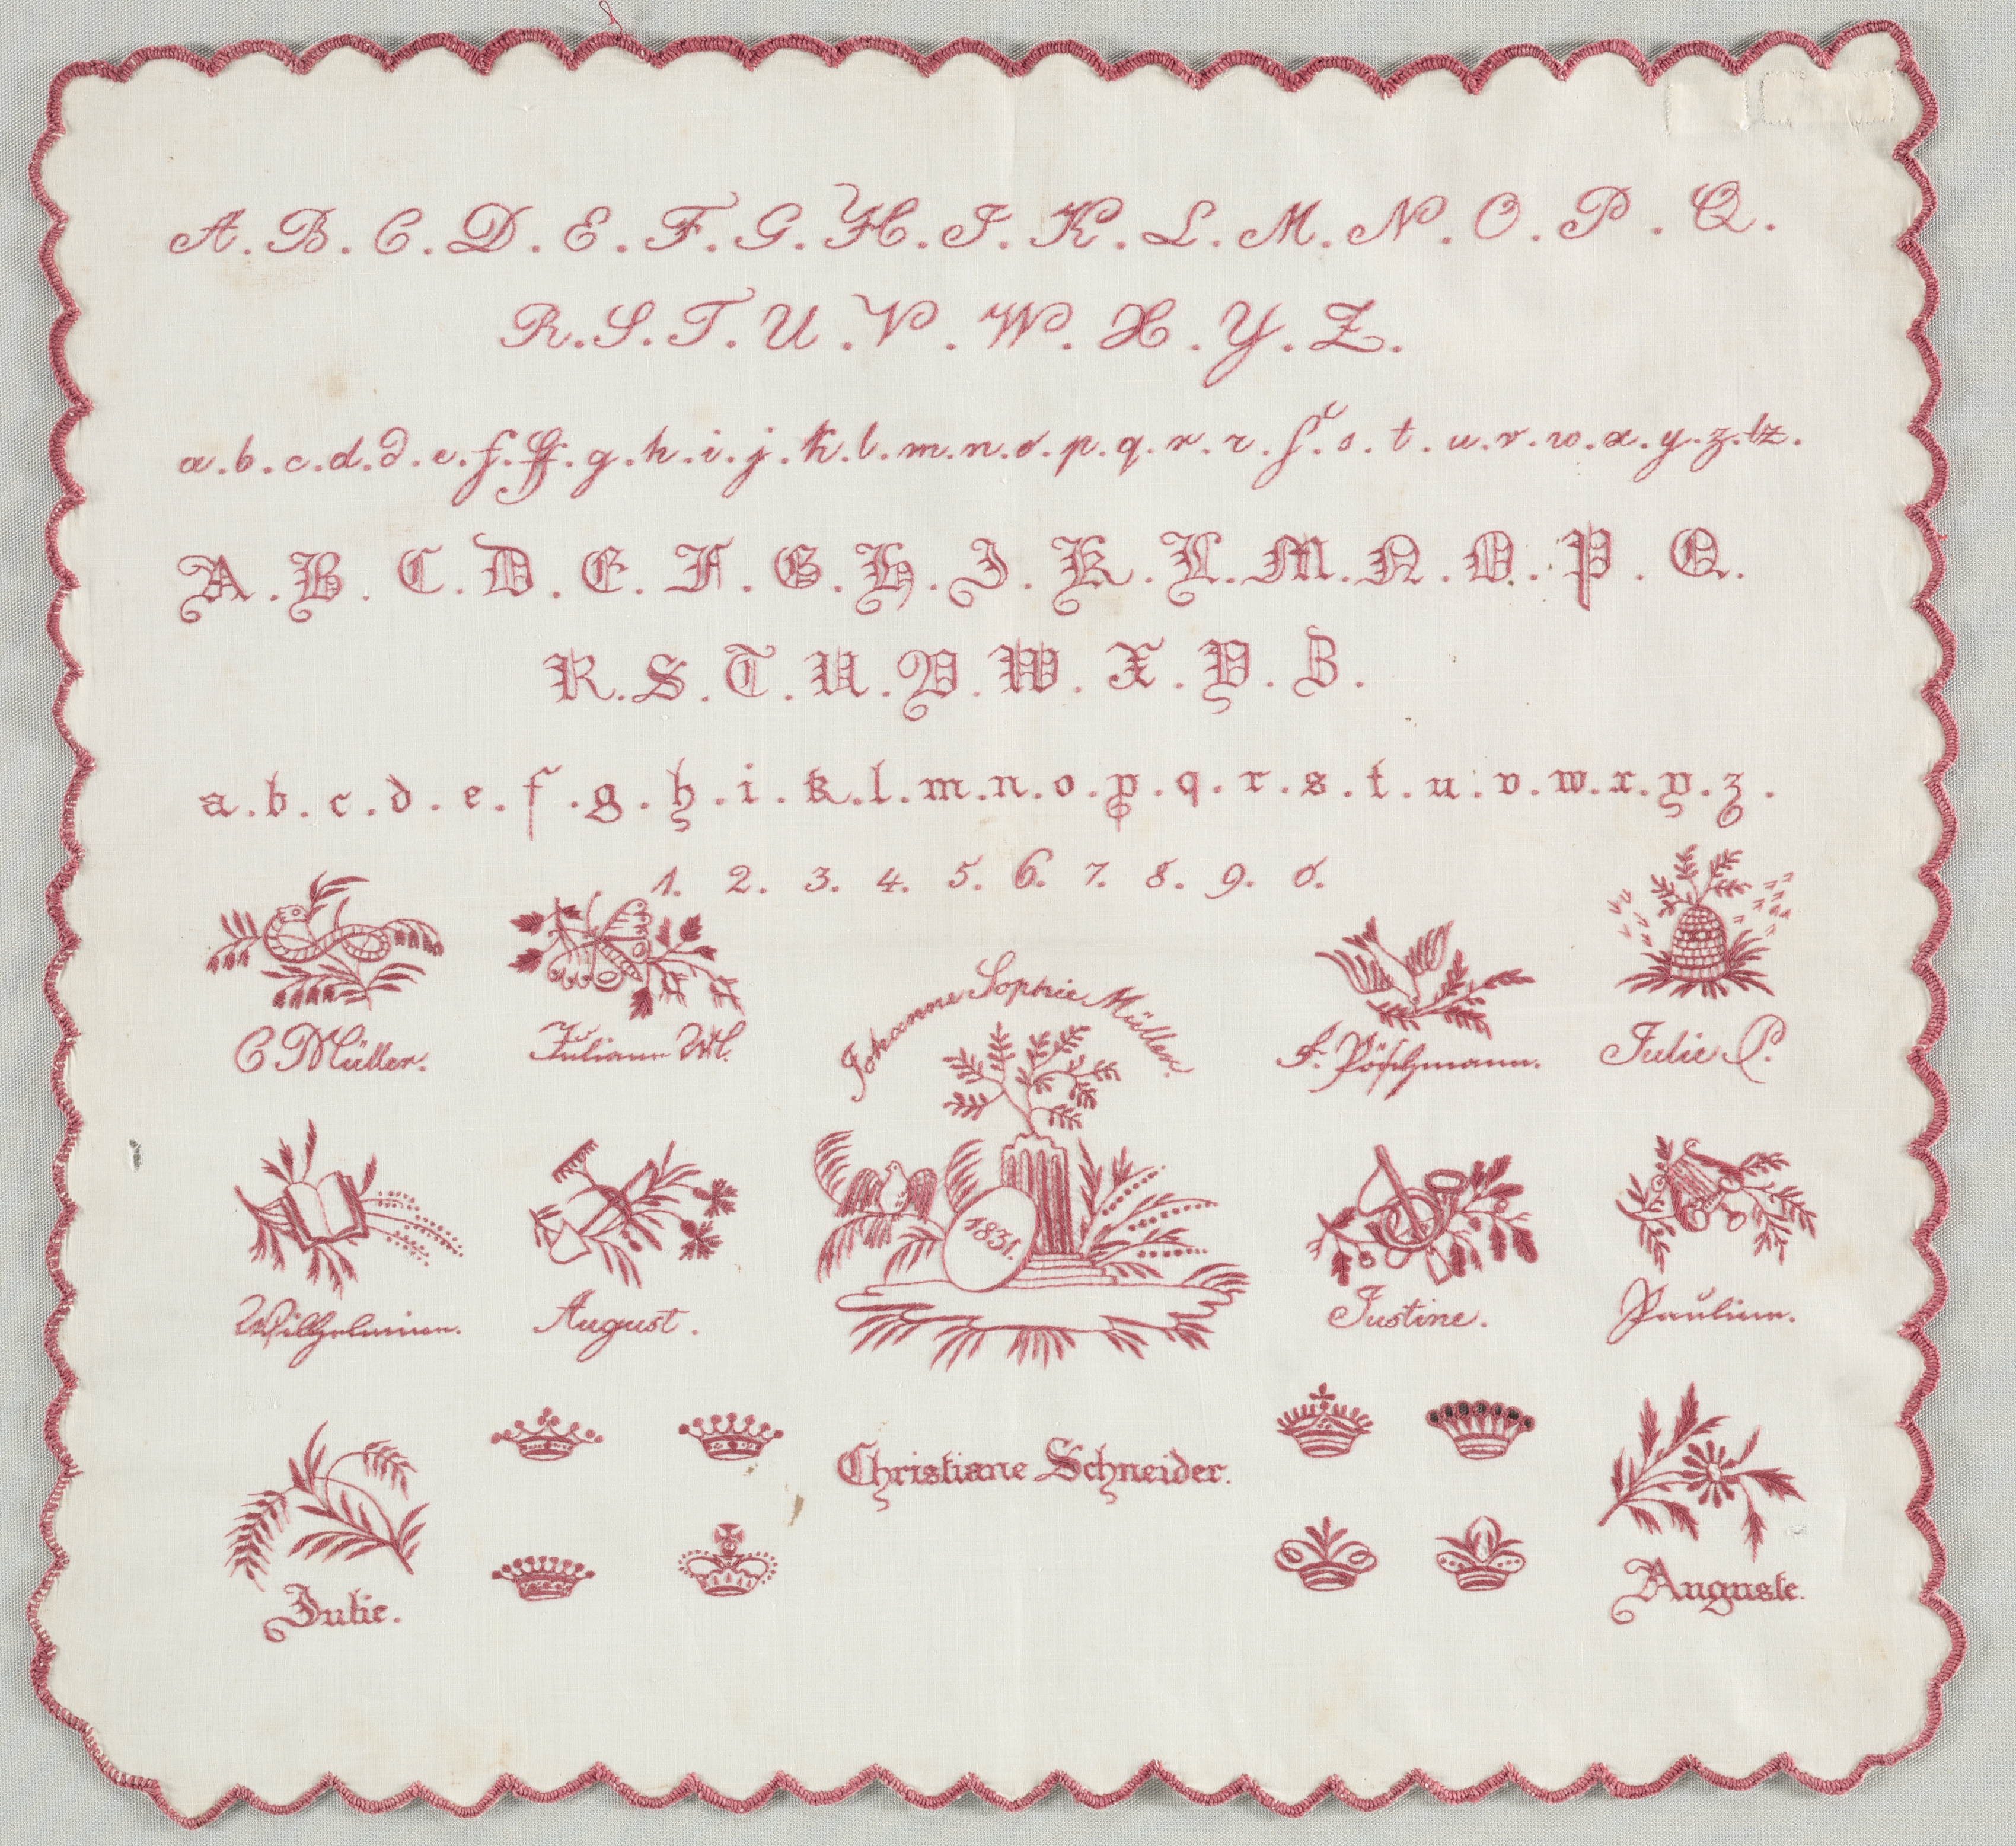 A. B. C. D. E. F. G. H. I. K. L. M. N. O. P. Q.
R. S. T. U. V. W. X. Y. Z.
a. b. c. d. d. e. f. ff. g. h. i. j. k. l. m. n. o. p. q. r. r. ſ. s. t. u. v. w. x. y. z. tz.
A. B. C. D. E. F. G. H. I. K. L. M. N. O. P. Q.
R. S. T. U. V. W. X. Y. Z.
a. b. c. d. e. f. g. h. i. k. l. m. n. o. p. q. r. s. t. u. v. w. x. y. z.
1. 2. 3. 4. 5. 6. 7. 8. 9. 0.
Johanne Sophie Müller.
C Müller.
Juliane
Pöschmann.
Julie P.
1831.
Wilhelmine.
August.
Justine.
Pauline.
Christiane Schneider.
Julie.
Auguste.